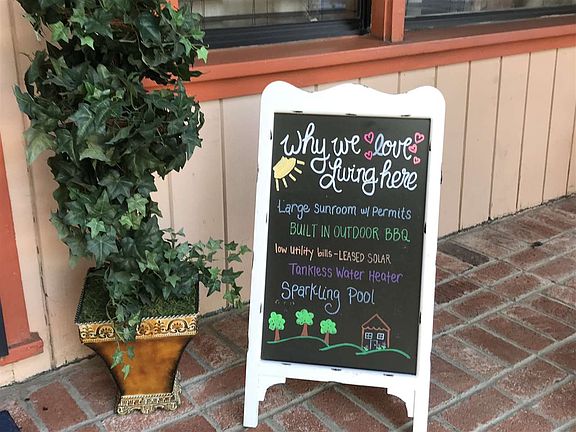 Why we love
living here
Large sunroom w/ Permits
BUILT IN OUTDOOR BBQ
low utility bills - LEASED SOLAR
Tankless Water Heater
Sparkling Pool